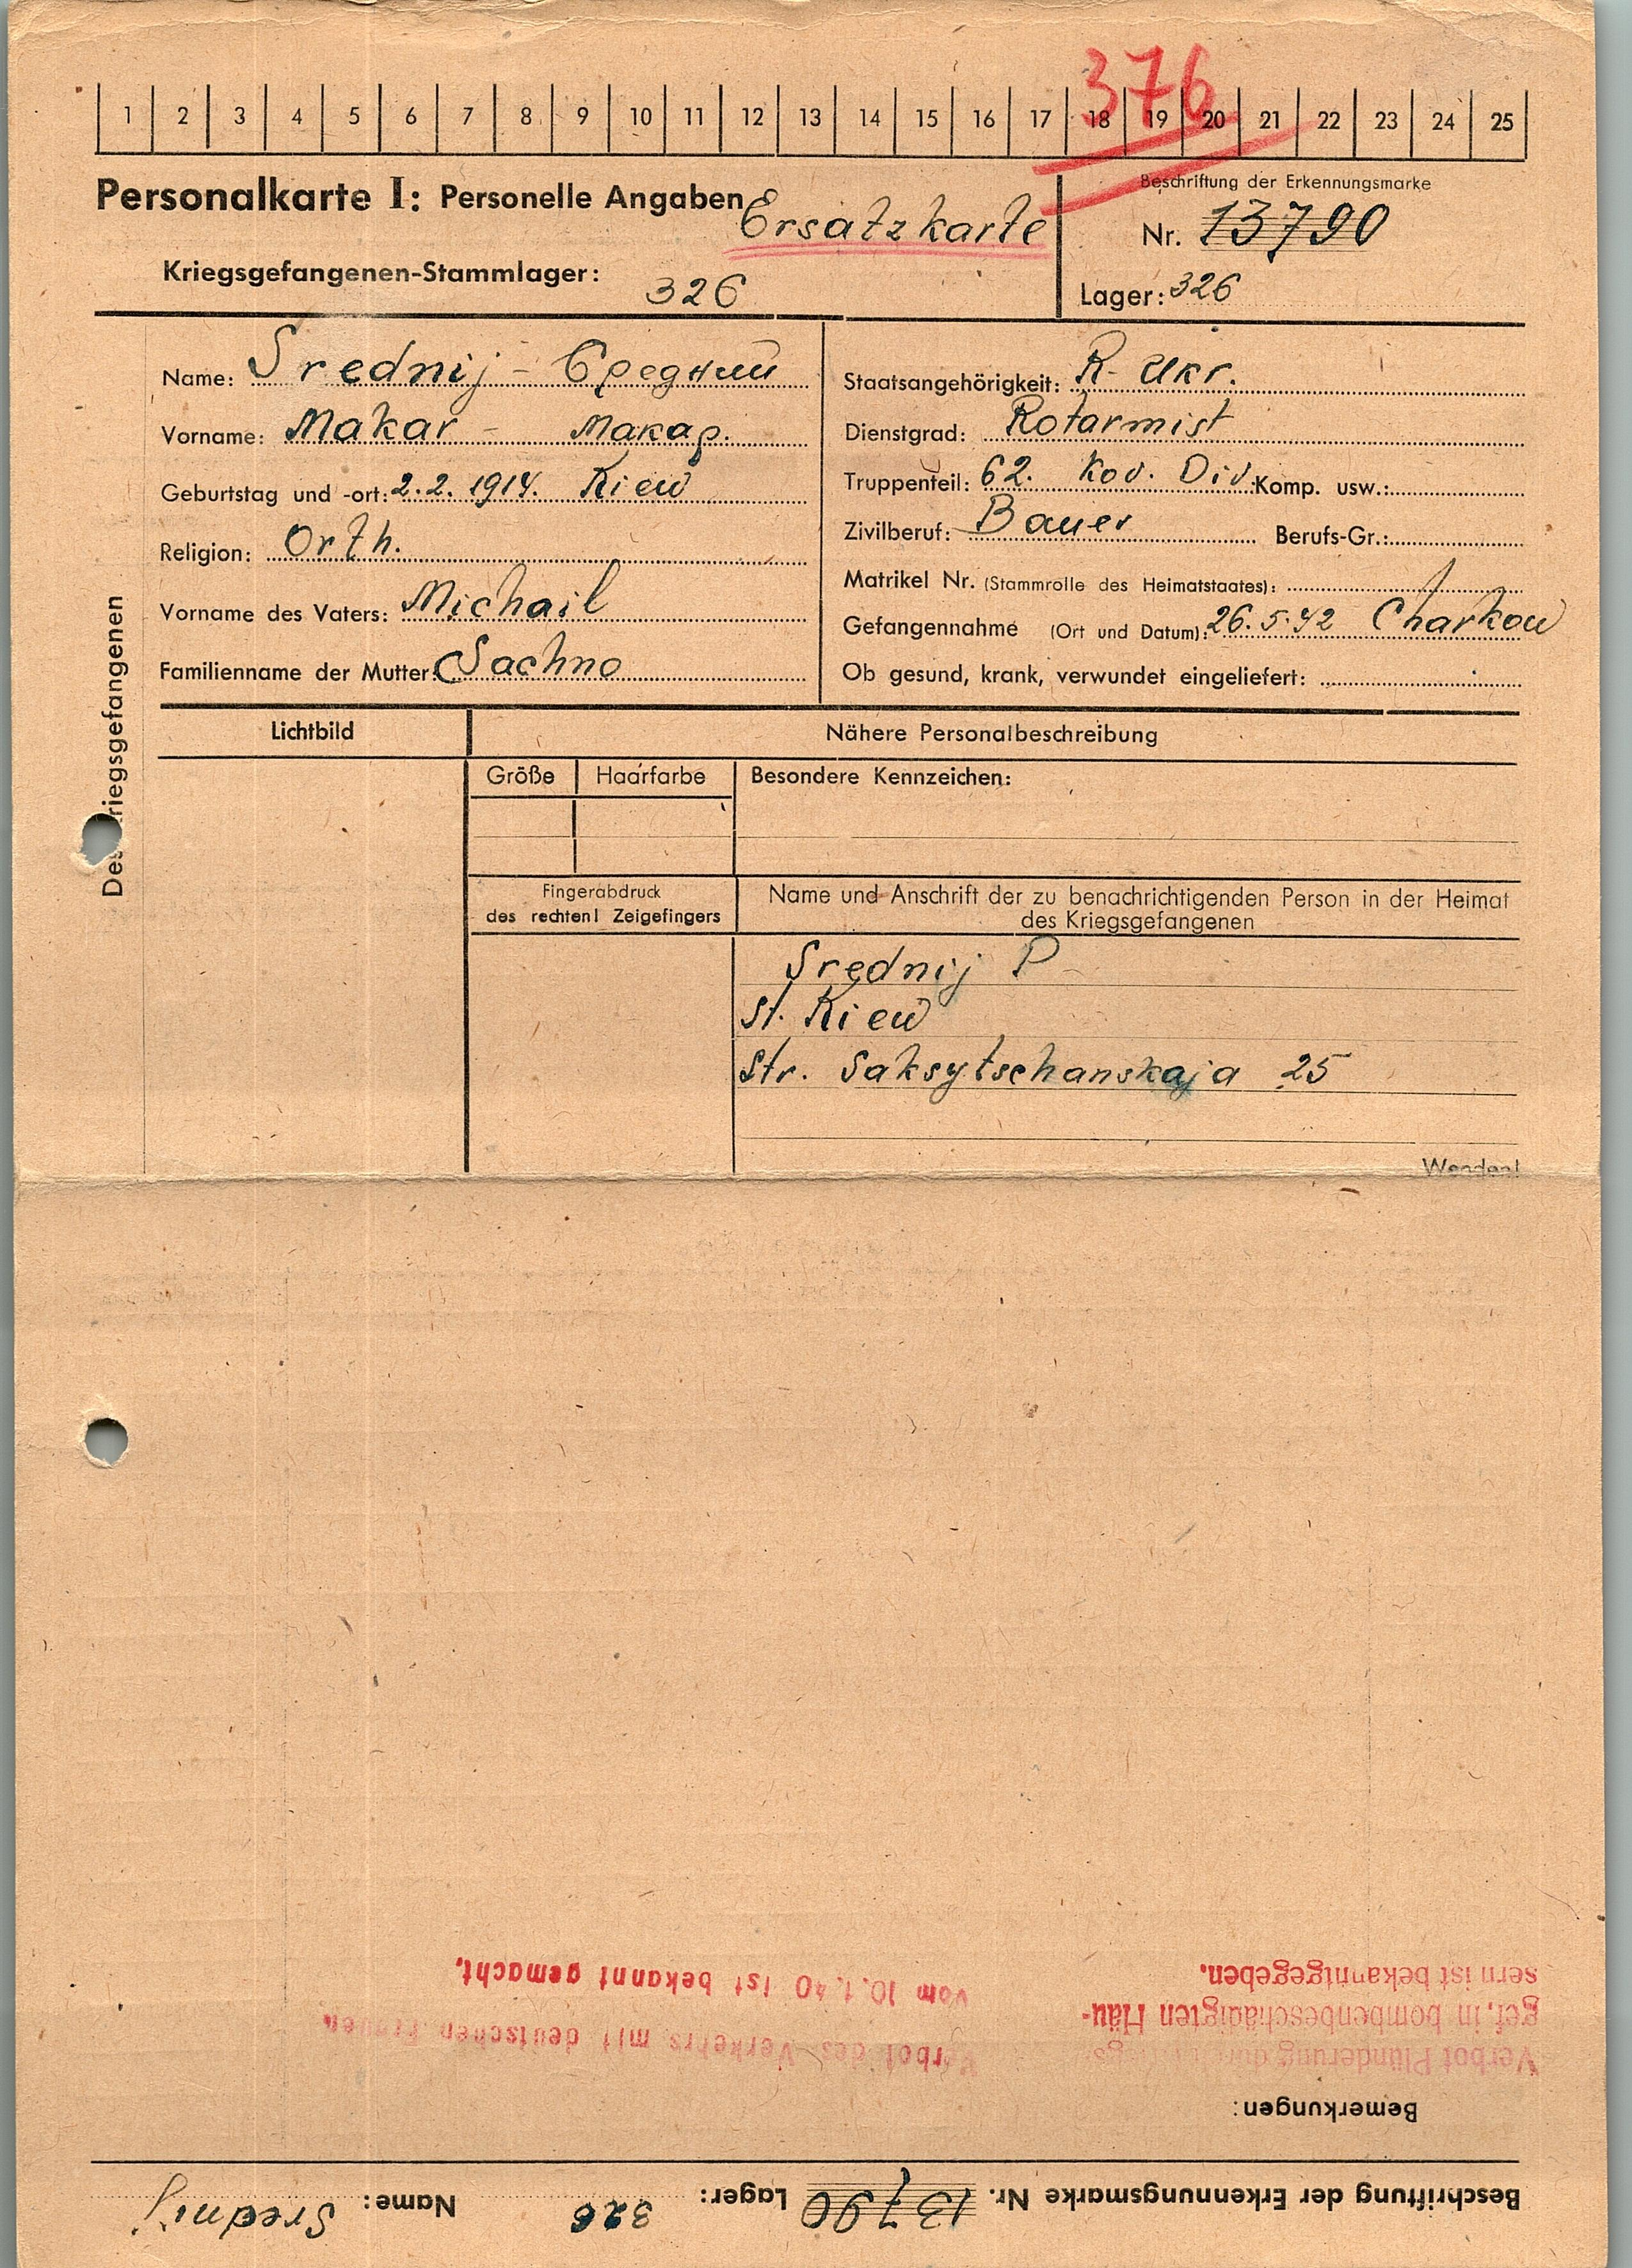 376
1 2 3 4 5 6 7 8 9 10 11 12 13 14 15 16 17 18 19 20 21 22 23 24 25
Personalkarte I: Personelle Angaben
Ersatzkarte
Kriegsgefangenen-Stammlager: 326
Beschriftung der Erkennungsmarke
Nr. 13790
Lager: 326
Des Kriegsgefangenen
Name: Srednij - Средний
Vorname: Makar - Макар.
Geburtstag und -ort: 2.2.1914. Kiew
Religion: Orth.
Vorname des Vaters: Michail
Familienname der Mutter: Sachno
Staatsangehörigkeit: R- Ukr.
Dienstgrad: Rotarmist
Truppenteil: 62. Kov. Div. Komp. usw.:
Zivilberuf: Bauer Berufs-Gr.:
Matrikel Nr. (Stammrolle des Heimatstaates):
Gefangennahme (Ort und Datum): 26.5.42 Charkow
Ob gesund, krank, verwundet eingeliefert:
Lichtbild
Nähere Personalbeschreibung
Größe Haarfarbe Besondere Kennzeichen:
Fingerabdruck
des rechten! Zeigefingers
Name und Anschrift der zu benachrichtigenden Person in der Heimat
des Kriegsgefangenen
Srednij P
St. Kiew
Str. Saksytschanskaja 25
Wenden!
Beschriftung der Erkennungsmarke Nr. 13790 Lager: 326 Name: Srednij
Bemerkungen:
Verbot Plünderung durch Kriegs
gef. in bombenbeschädigten Häu-
sern ist bekanntgegeben.
Verbot des Verkehrs mit deutschen Frauen
vom 10.1.40 ist bekannt gemacht.